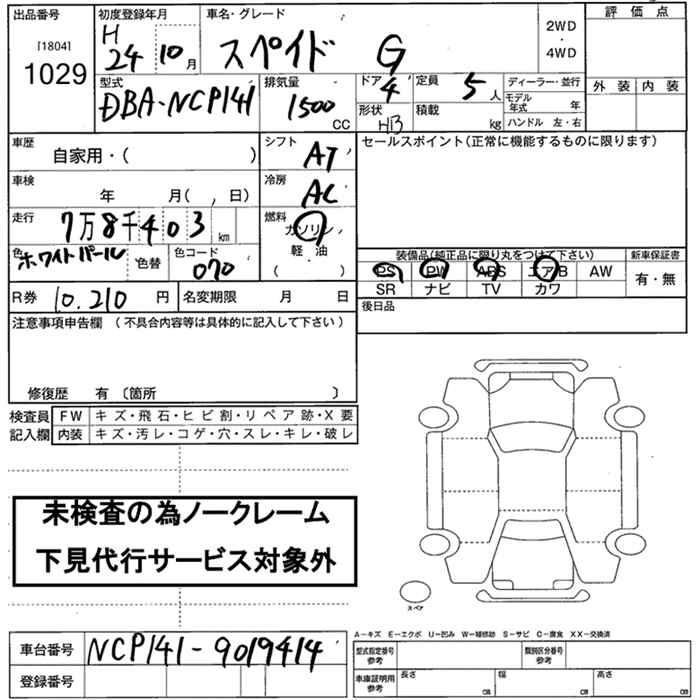 出品番号
[1804]
1029
初度登録年月
H
24 10月
車名・グレード
スペイド G
2WD
・
4WD
評価点
外装 内装
型式
DBA-NCP141
排気量
1500
CC
ドア
4
形状
HB
定員
5人
積載
kg
ディーラー・並行
モデル年式 年
ハンドル 左・右
車歴
自家用・( )
シフト
AT
セールスポイント(正常に機能するものに限ります)
車検
年 月( , 日)
冷房
AC
走行
7万8千403km
燃料
ガソリン
軽・油
( )
色
ホワイトパール
色替
色コード
070
装備品(純正品に限り丸をつけて下さい)
PS PW ABS エアB AW
SR ナビ TV カワ
新車保証書
有・無
R券 10.210円
名変期限 月 日
後日品
注意事項申告欄 (不具合内容等は具体的に記入して下さい)
修復歴 有〔箇所 〕
検査員記入欄
FW キズ・飛石・ヒビ割・リペア跡・X要
内装 キズ・汚レ・コゲ・穴・スレ・キレ・破レ
未検査の為ノークレーム
下見代行サービス対象外
スペア
車台番号 NCP141-9019414
登録番号
A−キズ E−エクボ U−凹み W−補修跡 S−サビ C−腐食 XX−交換済
型式指定番号
参考
類別区分番号
参考
車庫証明用
参考
長さ cm
幅 cm
高さ cm